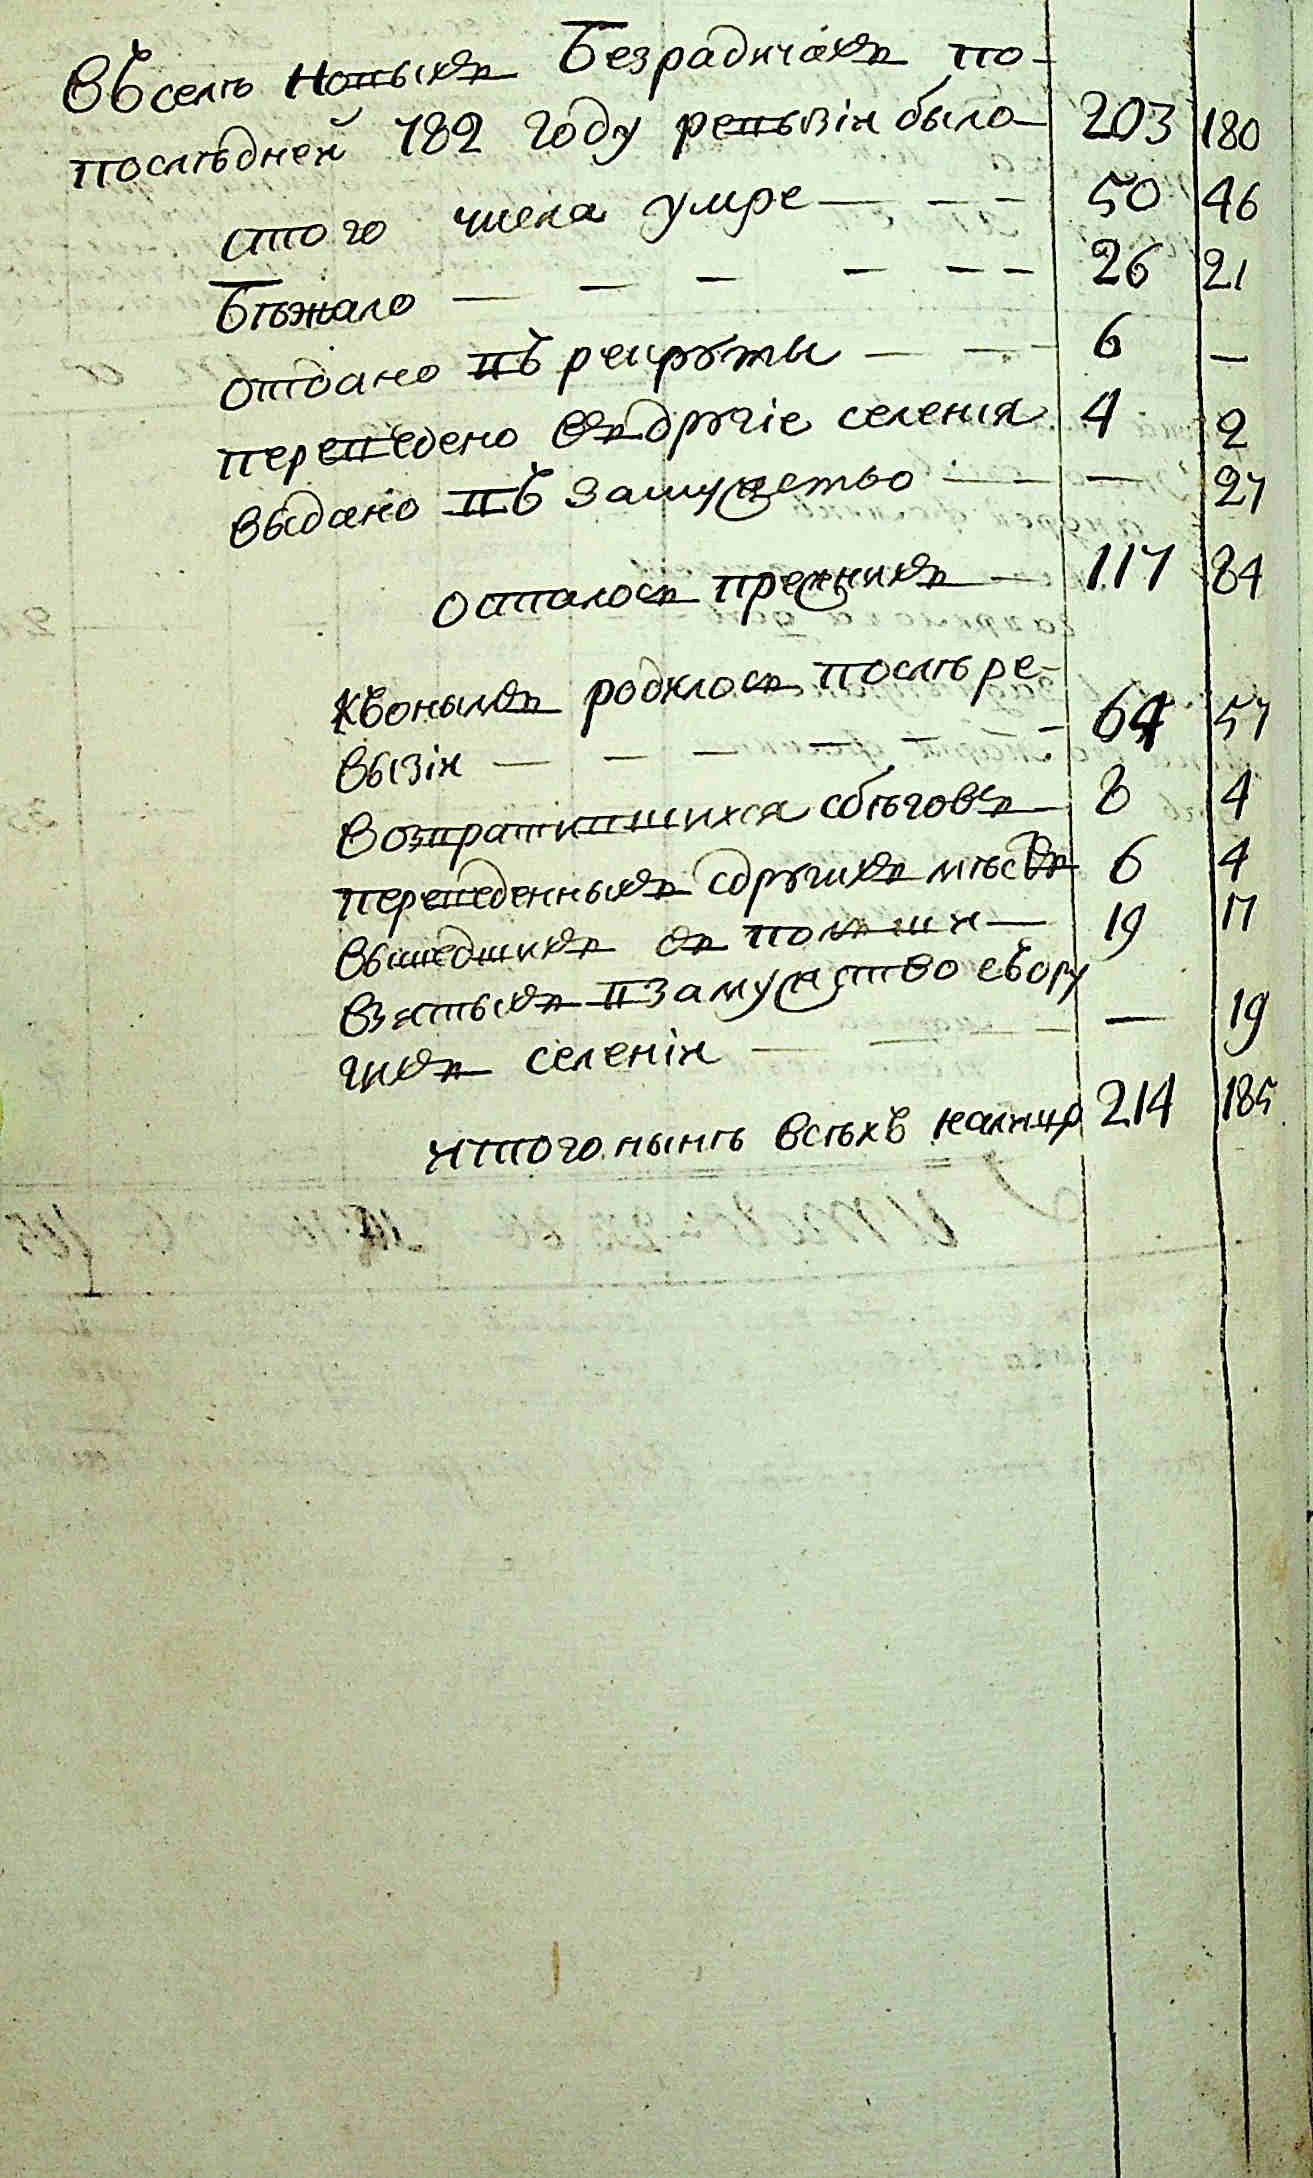 Въ селѣ Новыхъ Безрадичахъ по 203 180
последней 782 году ревызіи было
стого числа умре — — — 50 46
Бѣжало — — — — — — 26 21
отдано въ рекруты — — — 6 —
переведено въ другіе селенія 4 2
выдано въ замужество — — — 27
осталось прежнихъ — 117 84
Къ онымъ родилось послѣ ре-
вызіи — — — — — — 64 57
возвратившихся сбѣговъ — 8 4
переведенныхъ сдругихъ мѣстъ 6 4
вышедшихъ съ польши — 19 17
взятыхъ взамужство съ дру
гихъ селеній — — — 19
итого нынѣ всѣхъ налицо 214 185